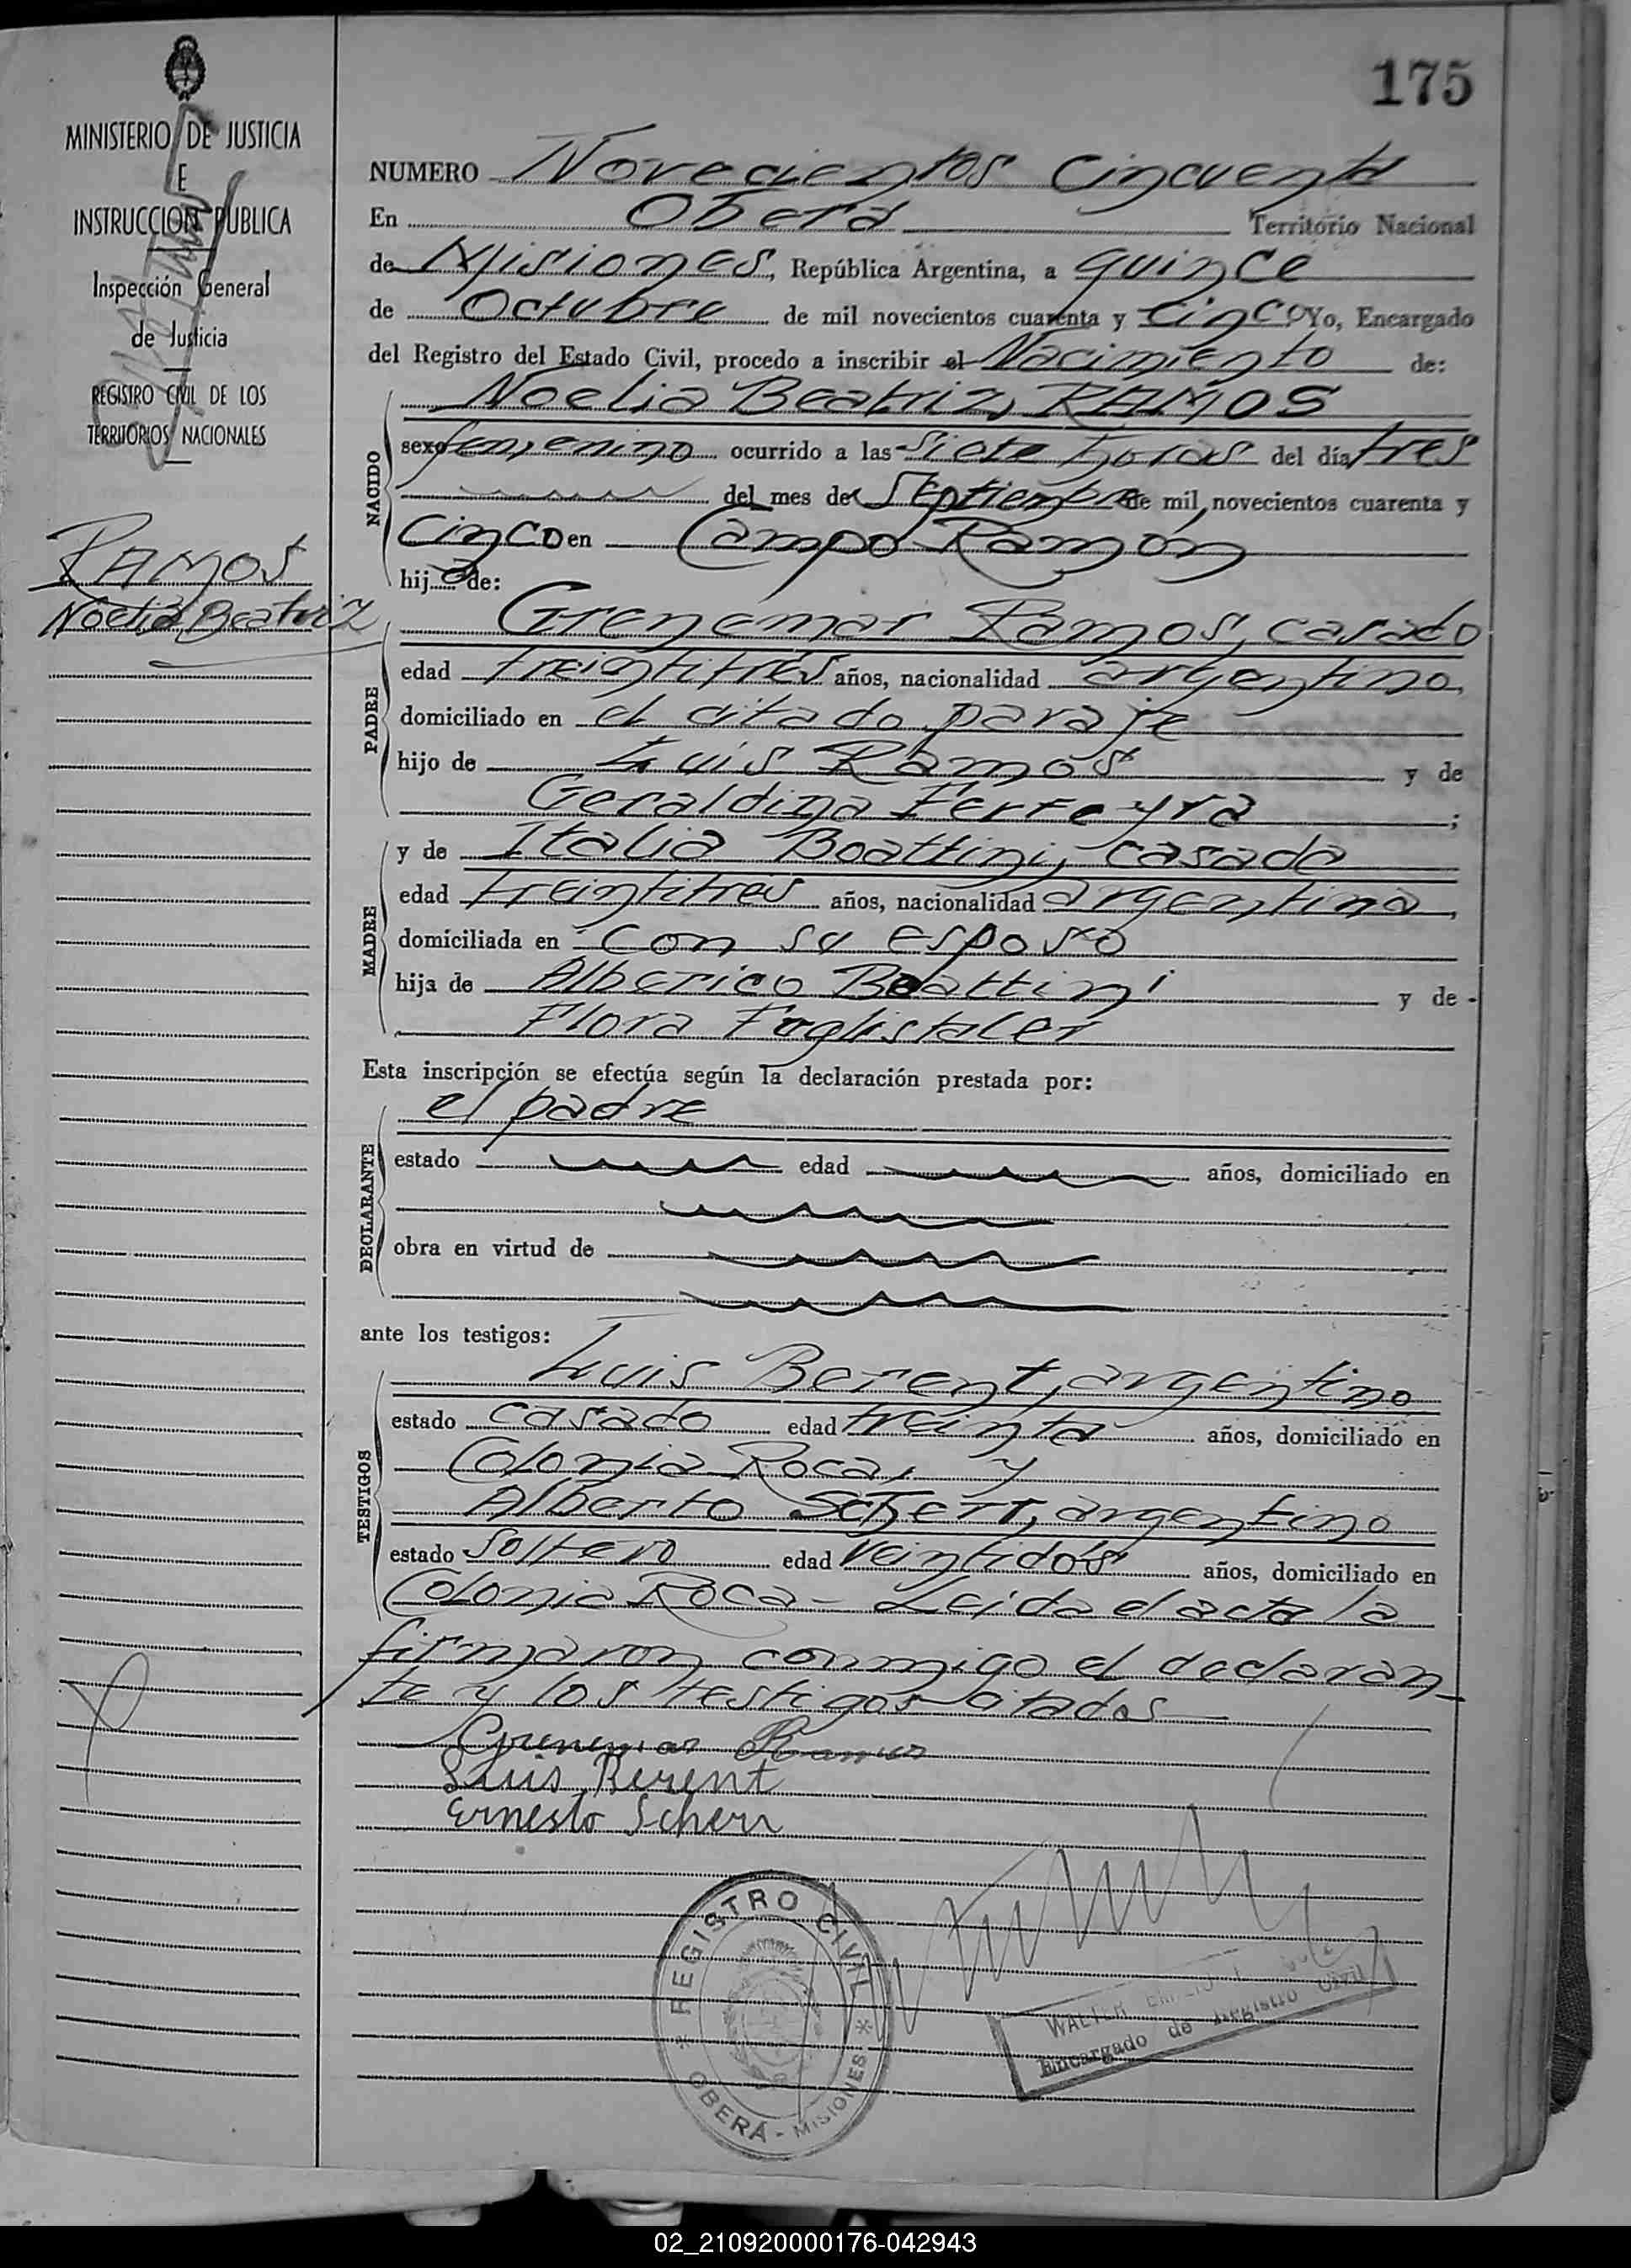 175
MINISTERIO DE JUSTICIA
E
INSTRUCCION PUBLICA
Inspección General
de Justicia
REGISTRO CIVIL DE LOS
TERRITORIOS NACIONALES
RAMOS
Noelia Beatriz
NUMERO Novecientos Cincuenta
En Oberá Territorio Nacional
de Misiones, República Argentina, a quince
de Octubre de mil novecientos cuarenta y cinco Yo, Encargado
del Registro del Estado Civil, procedo a inscribir el Nacimiento de:
NACIDO
Noelia Beatriz, RAMOS
sexo femenino ocurrido a las siete horas del día tres
del mes de Septiembre de mil novecientos cuarenta y
cinco en Campo Ramón
hija de:
PADRE
Grenemar Ramos, casado
edad treintitrés años, nacionalidad argentino,
domiciliado en el citado paraje
hijo de Luis Ramos y de
Geraldina Ferreyra;
MADRE
y de Italia Boattini, casada
edad treintitres años, nacionalidad argentina,
domiciliada en con su esposo
hija de Alberico Boattini y de -
Flora Fuglistaler
Esta inscripción se efectúa según la declaración prestada por:
DECLARANTE
el padre
estado edad años, domiciliado en
obra en virtud de
ante los testigos:
TESTIGOS
Luis Berent, argentino
estado casado edad treinta años, domiciliado en
Colonia Roca, y
Alberto Scherr, argentino
estado soltero edad veintidós años, domiciliado en
Colonia Roca - Leida el acta la
firmaron conmigo el declaran-
te y los testigos citados
Grenemar Ramos
Luis Berent
Ernesto Scherr
REGISTRO CIVIL
OBERÁ - MISIONES
WALTER EMILIO
Encargado de Registro Civil
02_210920000176-042943